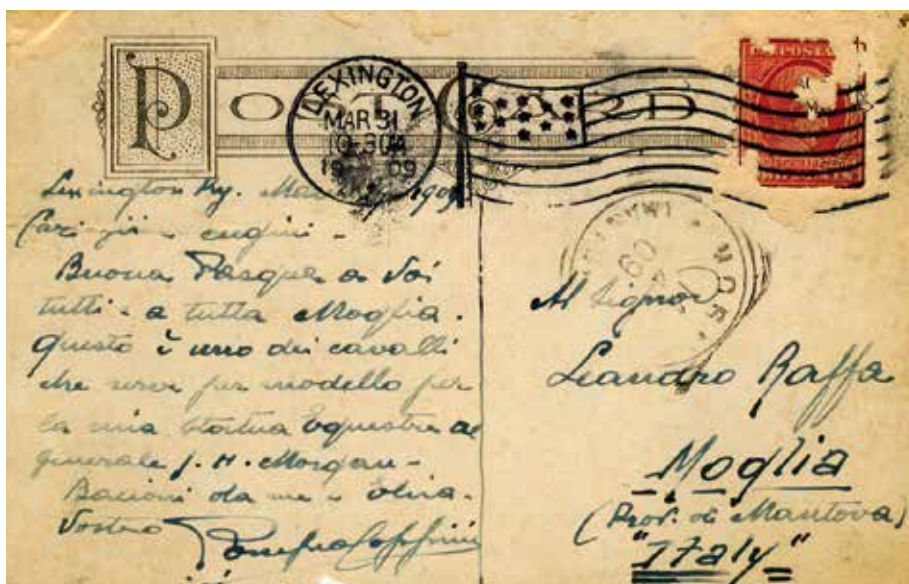 POST CARD
LEXINGTON
MAR 31
10-30A
1909
KY.
Lexington Ky. 1909
Cari cugini -
Buona Pasqua a Voi
tutti - a tutta Moglia.
Questo è uno dei cavalli
che per modello per
la mia Statua Equestre al
generale J. H. Morgan -
Bacioni da me e
Vostro Pompeo Coppini
Al Signor
Leandro Raffa
Moglia
(Prov. di Mantova)
"Italy"